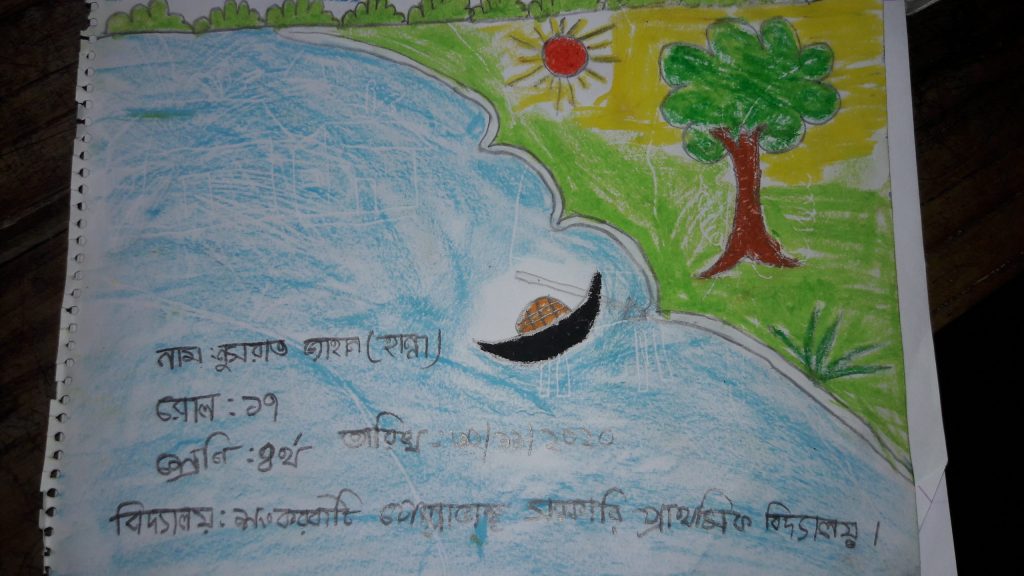 নাম নুসরাত জাহান (হান্না)
রোল : ১৭
শ্রেণি : ৪র্থ
তারিখ : /১১/২০২০
বিদ্যালয় : সরকারি প্রাথমিক বিদ্যালয় ।